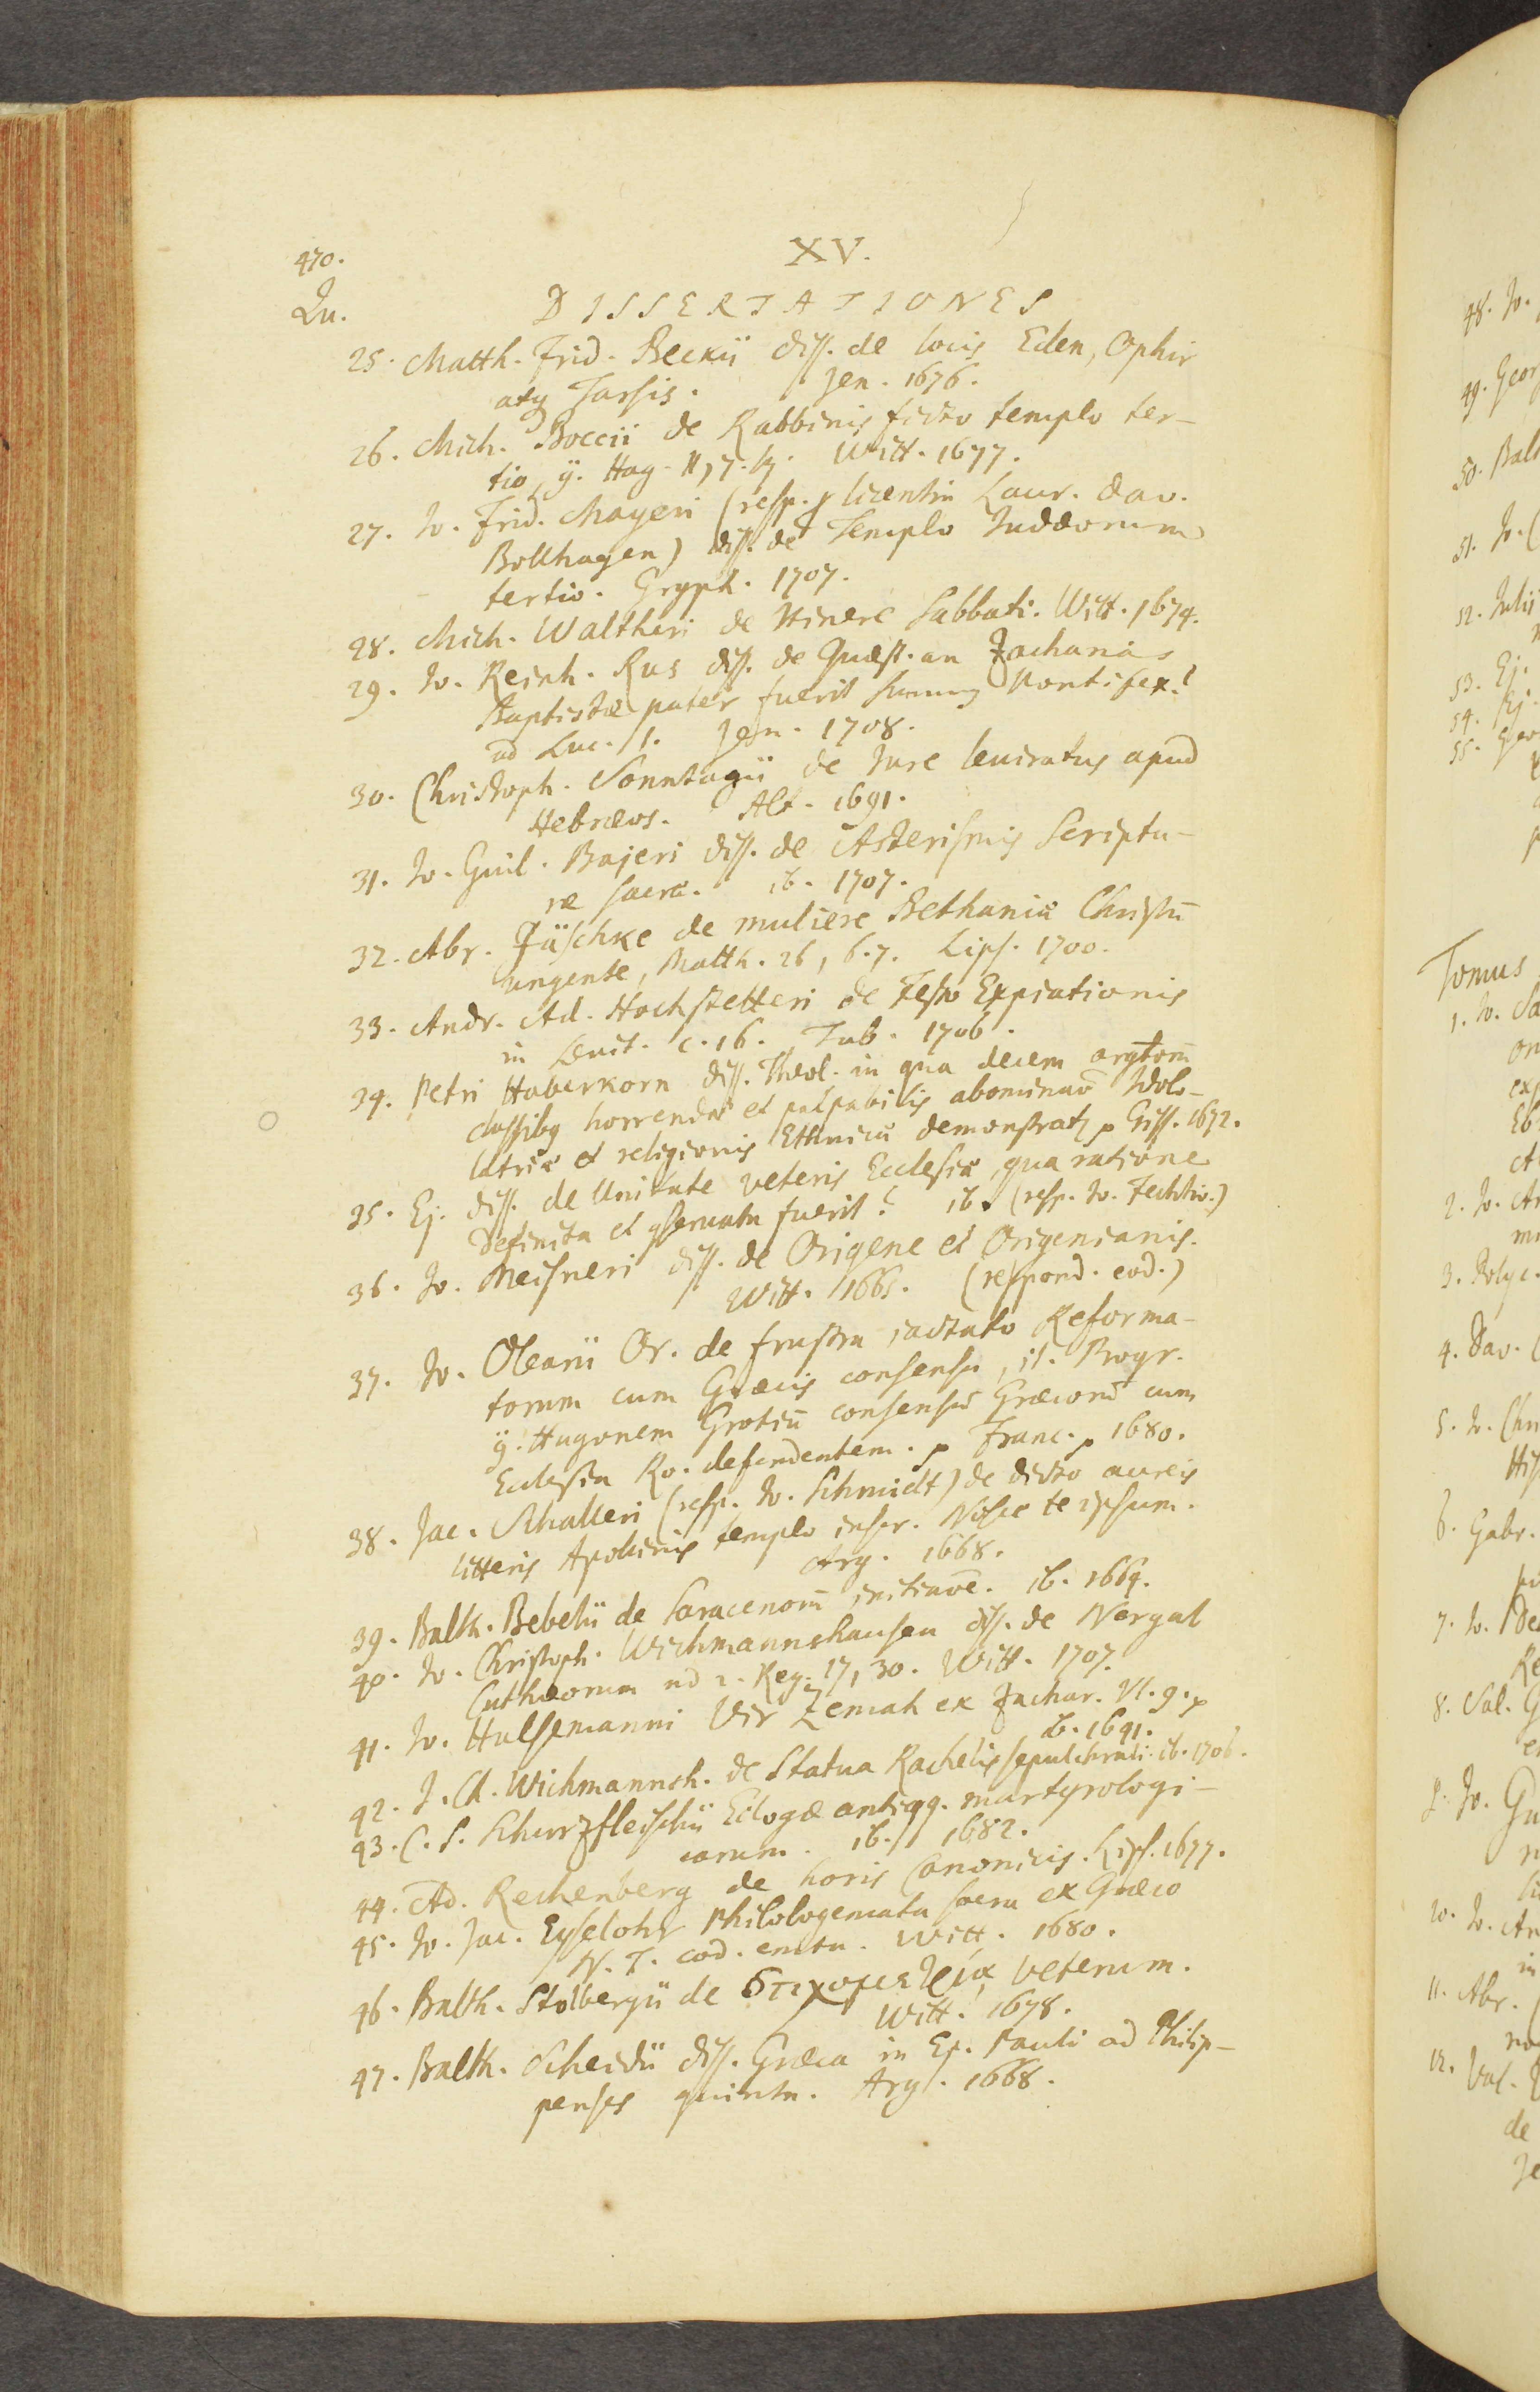 470.
XV.
Qu.
DISSERTATIONES
25. Matth. Frid. Beckii diss. de locis Eden, Ophir
atq Tarsis. Jen. 1676.
26. Mich. Boccii de Rabbinis ficto templo ter-
tio, Hag. II, 7. Witt. 1677.
27. Jo. Frid. Mayeri (resp. licentia Laur. Dav.
Bollhagen) diss. de Templo Judæorum
tertio. Gryph. 1707.
28. Mich. Waltheri de Itinere Sabbati. Witt. 1674.
29. Jo. Reinh. Rus diss. de Quæst. an Zacharias
Baptistæ pater fuerit summ9 Pontifex?
ad Luc. 1. Jen. 1708.
30. Christoph. Sonntagii de Jure leviratus apud
Hebræos. Alt. 1691.
31. Jo. Guil. Bajeri diss. de Asterismis Scriptu-
ræ sacræ. ib. 1707.
32. Abr. Jäschke de muliere Bethaniæ Christū
ungente, Matth. 26, 6.7. Lips. 1700.
33. Andr. Ad. Hochstetteri de Festo Expiationis
in Levit. c. 16. Tub. 1706.
34. Petri Haberkorn diss. Theol. in qua decem argtorū
classibq horrenda et palpabilis abominaō Idolo-
latriæ et religionis Ethnicæ demonstratz p Giss. 1672.
35. Ej. diss. de Unitate veteris Ecclesiæ, qua ratione
definita et gservata fuerit? ib. (resp. Jo. Fechtio.)
36. Jo. Meisneri diss. de Origene et Origenianis.
Witt. 1665. (respond. eod.)
37. Jo. Olearii Or. de frustra iactato Reforma-
torum cum Græcis consensu, it. Progr.
Hugonem Grotiū consensū Græcorū cum
Ecclesia Ro. defendentem. p Franc. p 1680.
38. Jac. Schalleri (resp. Jo. Schmidt) de dicto aureis
litteris Apollinis templo inscr. Nosce te ipsum.
Arg. 1668.
39. Balth. Bebelii de Saracenorū initiaōe. ib. 1669.
40. Jo. Christoph. Wichmannshausen diss. de Nergal
Cuthæorum ad 2. Reg. 17, 30. Witt. 1707.
41. Jo. Hulsemanni Vir Zemah ex Zachar. VI. 9. p
ib. 1691.
42. J. C. Wichmannsh. de Statua Rachelis sepulchrali. ib. 1706.
43. C. S. Schurzfleischii Eclogæ antiqq. martyrologi-
corum. ib. 1682.
44. Ad. Rechenberg de horis Canonicis. Lips. 1677.
45. Jo. Jac. Eyselohr Philologemata sacra ex Græco
N. T. cod. emta. Witt. 1680.
46. Balth. Stolbergii de veterum.
Witt. 1678.
47. Balth. Scheidii diss. Græca in Ep. Pauli ad Philip-
penses quinta. Arg. 1668.
48. Jo.
49. Geor
50. Bal
51. Jo.
52. Julii
53. Ej.
54. Ej.
55. Geo
Tomus
1. Jo. Sa
2. Jo. Ar
3. Polyc.
4. Dav.
5. Jo. Chr
6. Gabr.
7. Jo. De
8. Sal. G
9. Jo. Gu
10. Jo. An
11. Abr.
12. Val.
de
Je